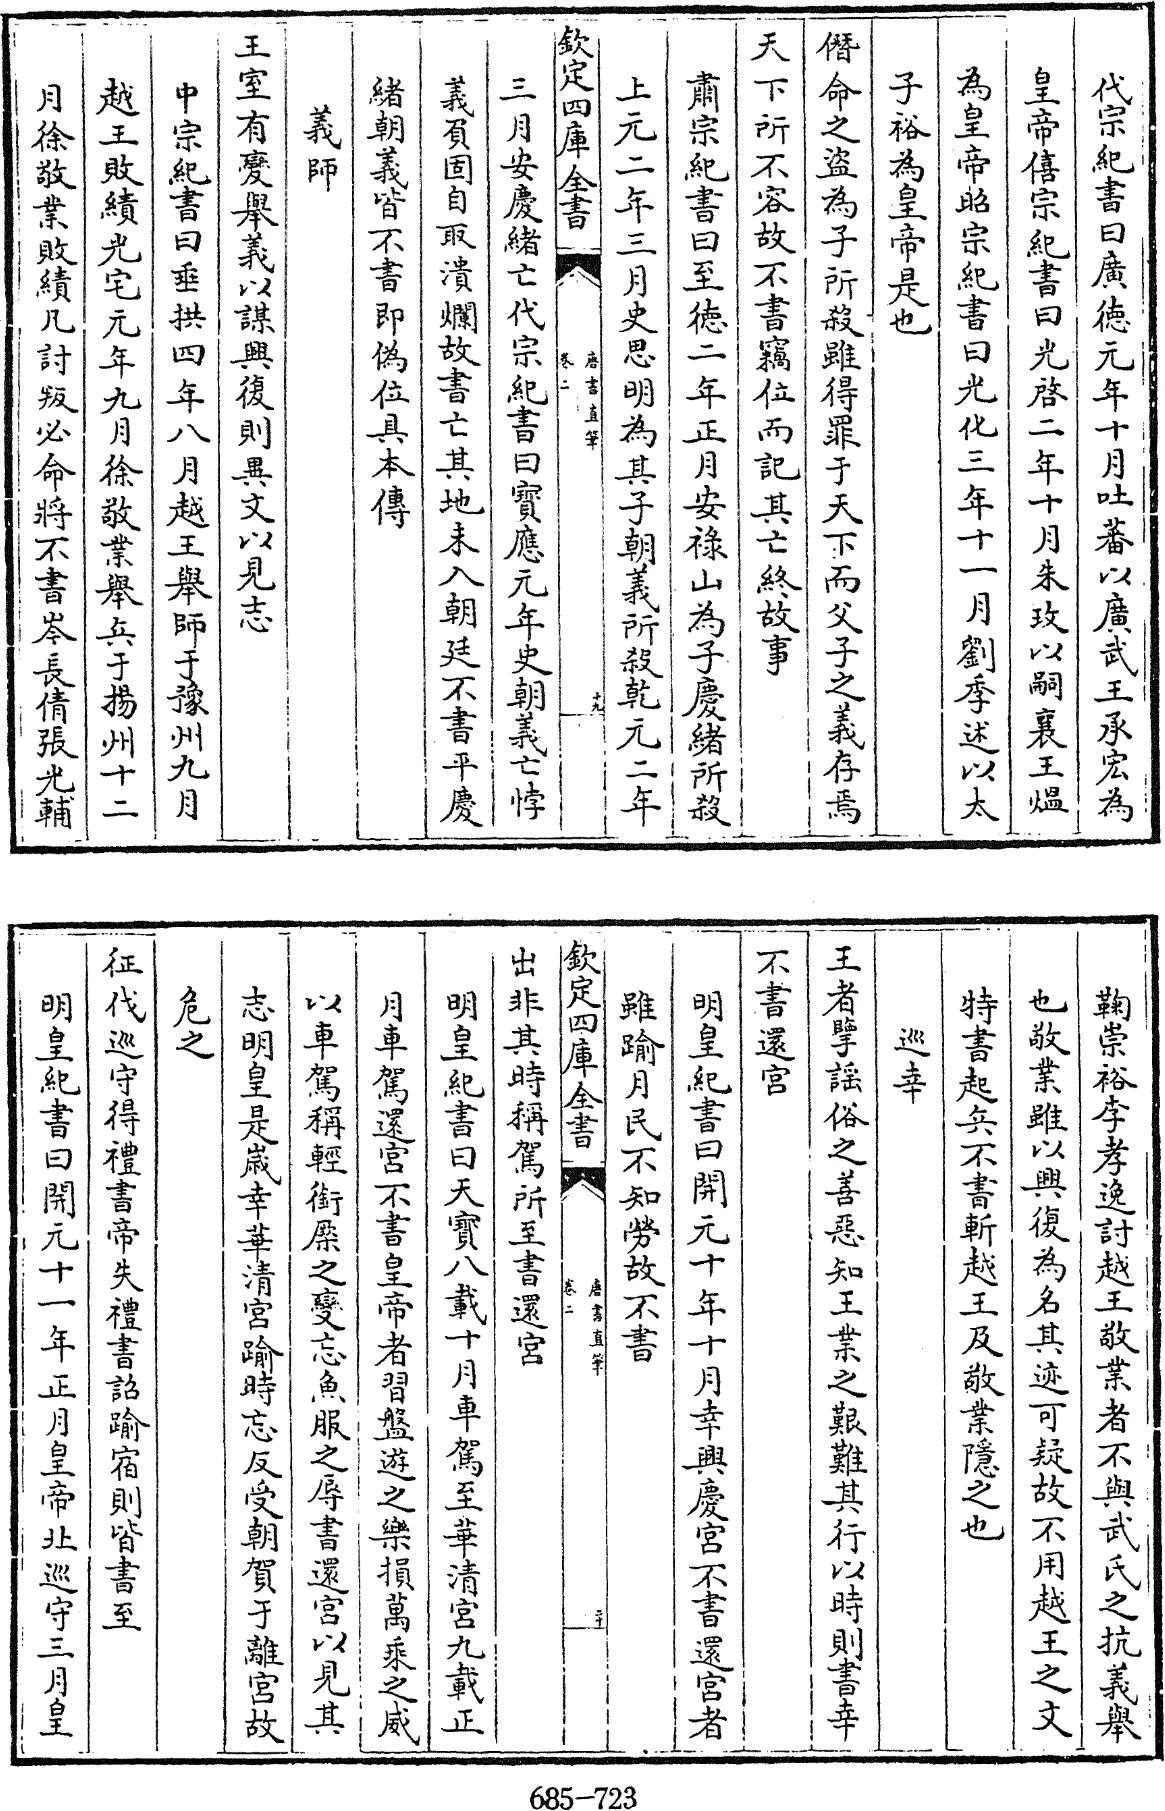 代宗紀書曰廣徳元年十月吐蕃以廣武王承宏為
皇帝僖宗紀書曰光啓二年十月朱玫以嗣襄王煴
為皇帝昭宗紀書曰光化三年十一月劉季述以太
子裕為皇帝是也
僭命之盜為子所殺雖得罪于天下而父子之義存焉
天下所不容故不書竊位而記其亡終故事
肅宗紀書曰至徳二年正月安祿山為子慶緒所殺
上元二年三月史思明為其子朝義所殺乾元二年
欽定四庫全書
唐書直筆
卷二
十九
三月安慶緒亡代宗紀書曰寶應元年史朝義亡悖
義負固自取潰爛故書亡其地未入朝廷不書平慶
緒朝義皆不書即偽位具本傳
義師
王室有變舉義以謀興復則異文以見志
中宗紀書曰垂拱四年八月越王舉師于豫州九月
越王敗績光宅元年九月徐敬業舉兵于揚州十二
月徐敬業敗績凡討叛必命將不書岑長倩張光輔
鞠崇裕李孝逸討越王敬業者不與武氏之抗義舉
也敬業雖以興復為名其迹可疑故不用越王之文
特書起兵不書斬越王及敬業隱之也
巡幸
王者擥謡俗之善惡知王業之艱難其行以時則書幸
不書還宮
明皇紀書曰開元十年十月幸興慶宮不書還宮者
雖踰月民不知勞故不書
欽定四庫全書
唐書直筆
卷二
二十
出非其時稱駕所至書還宮
明皇紀書曰天寶八載十月車駕至華清宮九載正
月車駕還宮不書皇帝者習盤遊之樂損萬乘之威
以車駕稱輕銜橜之變忘魚服之辱書還宮以見其
志明皇是嵗幸華清宮踰時忘反受朝賀于離宮故
危之
征伐巡守得禮書帝失禮書詔踰宿則皆書至
明皇紀書曰開元十一年正月皇帝北巡守三月皇
685-723